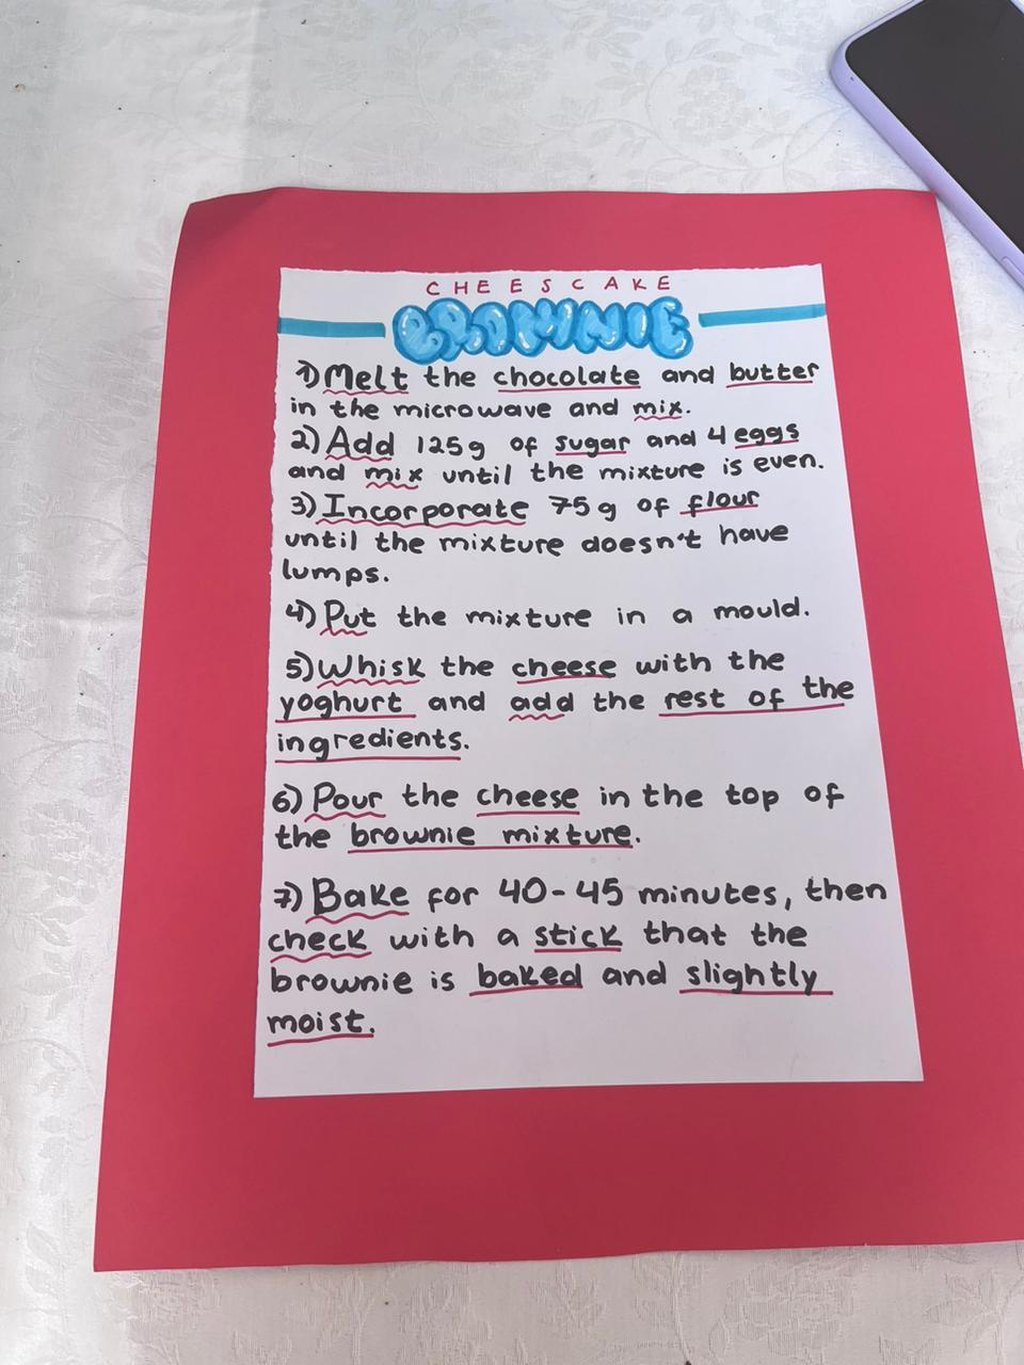 CHEESCAKE
BROWNIE
1) Melt the chocolate and butter
in the microwave and mix.
2) Add 125g of sugar and 4 eggs
and mix until the mixture is even.
3) Incorporate 75g of flour
until the mixture doesn't have
lumps.
4) Put the mixture in a mould.
5) Whisk the cheese with the
yoghurt and add the rest of the
ingredients.
6) Pour the cheese in the top of
the brownie mixture.
7) Bake for 40-45 minutes, then
check with a stick that the
brownie is baked and slightly
moist.